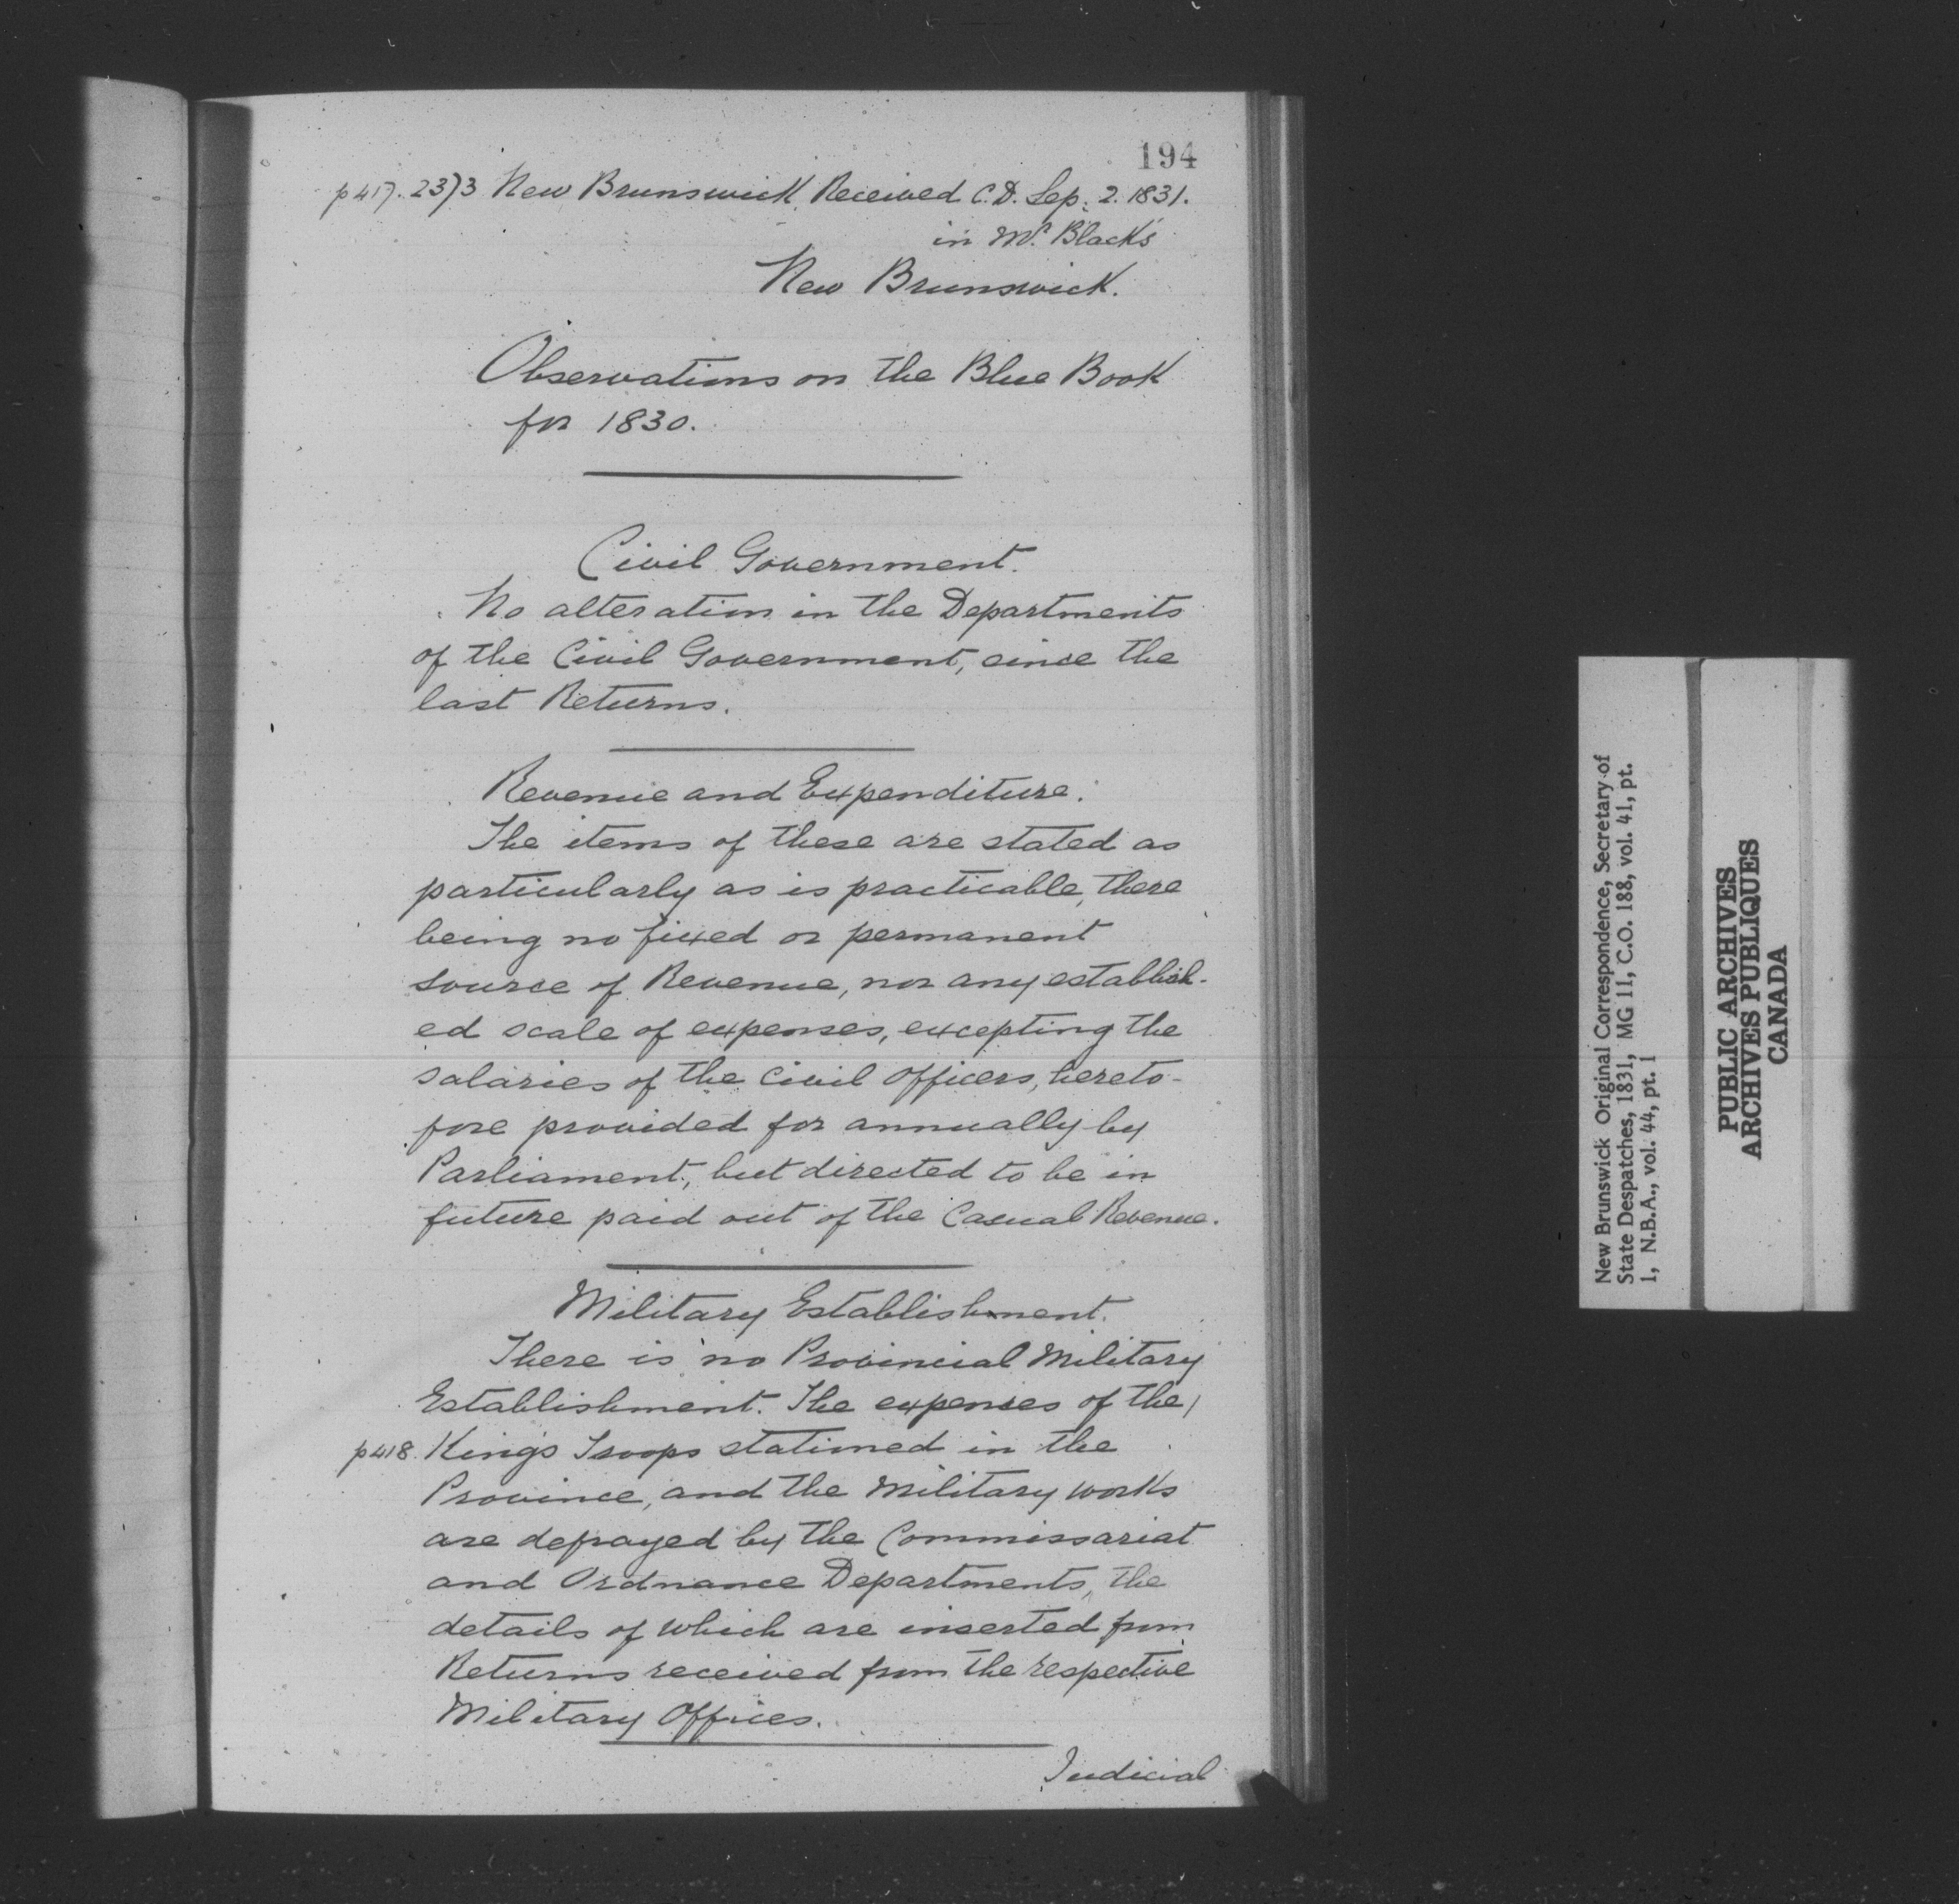 194
p417. 2373 New Brunswick. Received C.D. Sep: 2. 1831.
in Mr. Black's
New Brunswick.
Observations on the Blue Book
for 1830.
Civil Government.
No alteration in the Departments
of the Civil Government, since the
last Returns.
Revenue and Expenditure.
The items of these are stated as
particularly as is practicable, there
being no fixed or permanent
source of Revenue, nor any establish-
ed scale of expenses, excepting the
salaries of the Civil Officers, hereto-
fore provided for annually by
Parliament, but directed to be in
future paid out of the Casual Revenue.
Military Establishment.
There is no Provincial Military
Establishment. The expenses of the/
p418. King's Troops stationed in the
Province, and the Military works
are defrayed by the Commissariat
and Ordnance Departments, the
details of which are inserted from
Returns received from the respective
Military Offices.
Judicial
New Brunswick Original Correspondence, Secretary of
State Despatches, 1831, MG 11, C.O. 188, vol. 41, pt.
1, N.B.A., vol. 44, pt. 1
PUBLIC ARCHIVES
ARCHIVES PUBLIQUES
CANADA